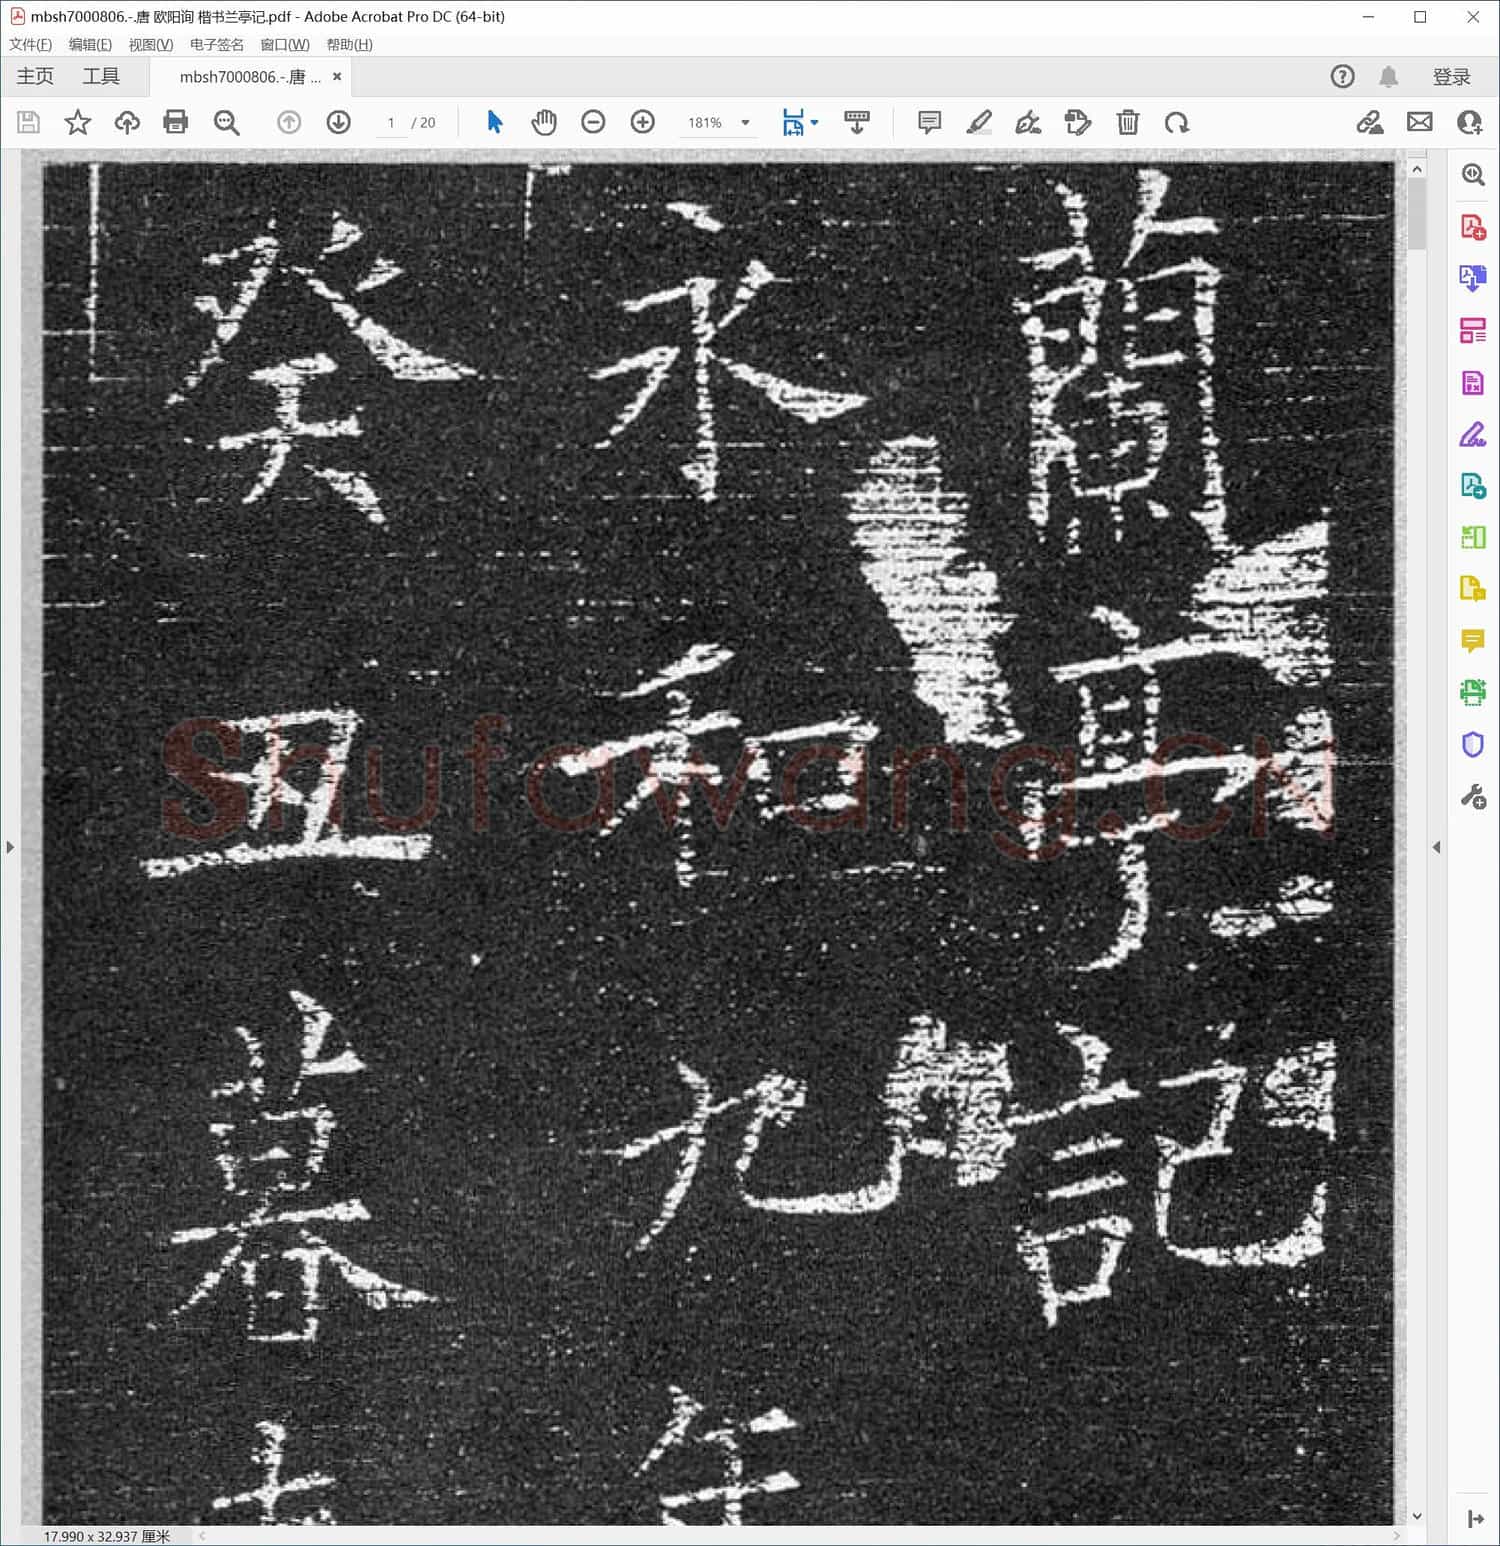 mbsh7000806.-.唐 欧阳询 楷书兰亭记.pdf - Adobe Acrobat Pro DC (64-bit)
文件(F) 编辑(E) 视图(V) 电子签名 窗口(W) 帮助(H)
主页 工具 mbsh7000806.-.唐 ... × 登录
1 / 20 181%
蘭亭記
永和九年
癸丑暮
Shufawang.CN
17.990 x 32.937 厘米